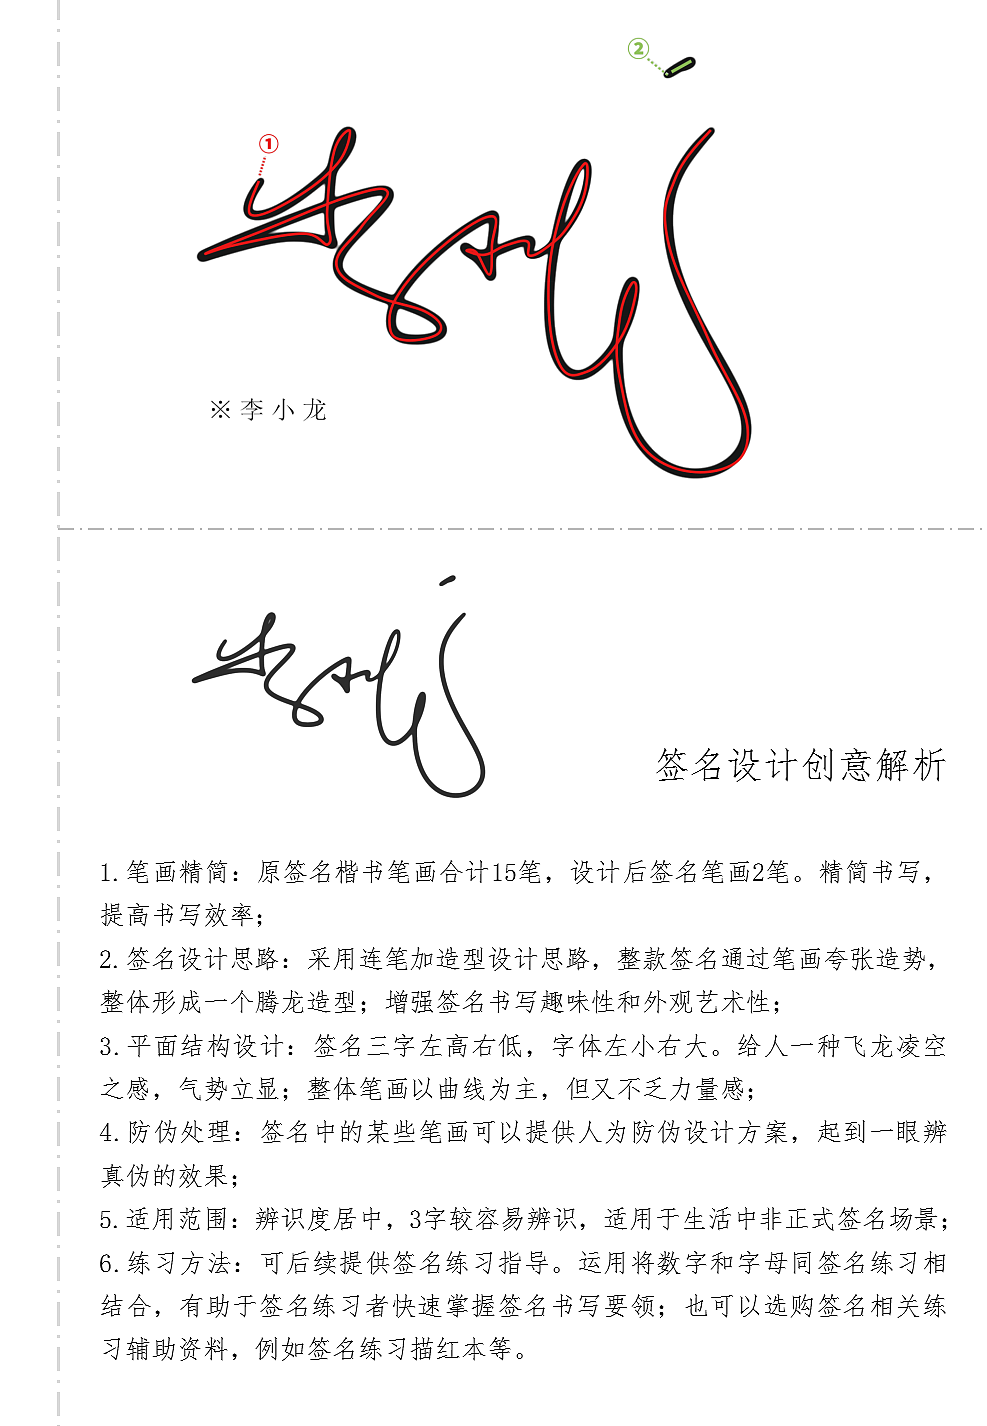 ②
①
※李小龙
签名设计创意解析
1.笔画精简：原签名楷书笔画合计15笔，设计后签名笔画2笔。精简书写，
提高书写效率；
2.签名设计思路：采用连笔加造型设计思路，整款签名通过笔画夸张造势，
整体形成一个腾龙造型；增强签名书写趣味性和外观艺术性；
3.平面结构设计：签名三字左高右低，字体左小右大。给人一种飞龙凌空
之感，气势立显；整体笔画以曲线为主，但又不乏力量感；
4.防伪处理：签名中的某些笔画可以提供人为防伪设计方案，起到一眼辨
真伪的效果；
5.适用范围：辨识度居中，3字较容易辨识，适用于生活中非正式签名场景；
6.练习方法：可后续提供签名练习指导。运用将数字和字母同签名练习相
结合，有助于签名练习者快速掌握签名书写要领；也可以选购签名相关练
习辅助资料，例如签名练习描红本等。